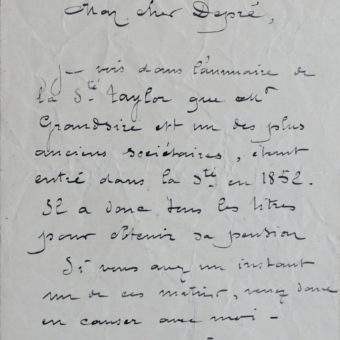 Mon cher Depré,
Je vois dans l'annuaire de
la S.té Taylor que Mr
Grandsire est un des plus
anciens sociétaires, étant
entré dans la S.té en 1852.
Il a donc tous les titres
pour obtenir sa pension
Si vous avez un instant
un de ces matins, venez donc
en causer avec moi -